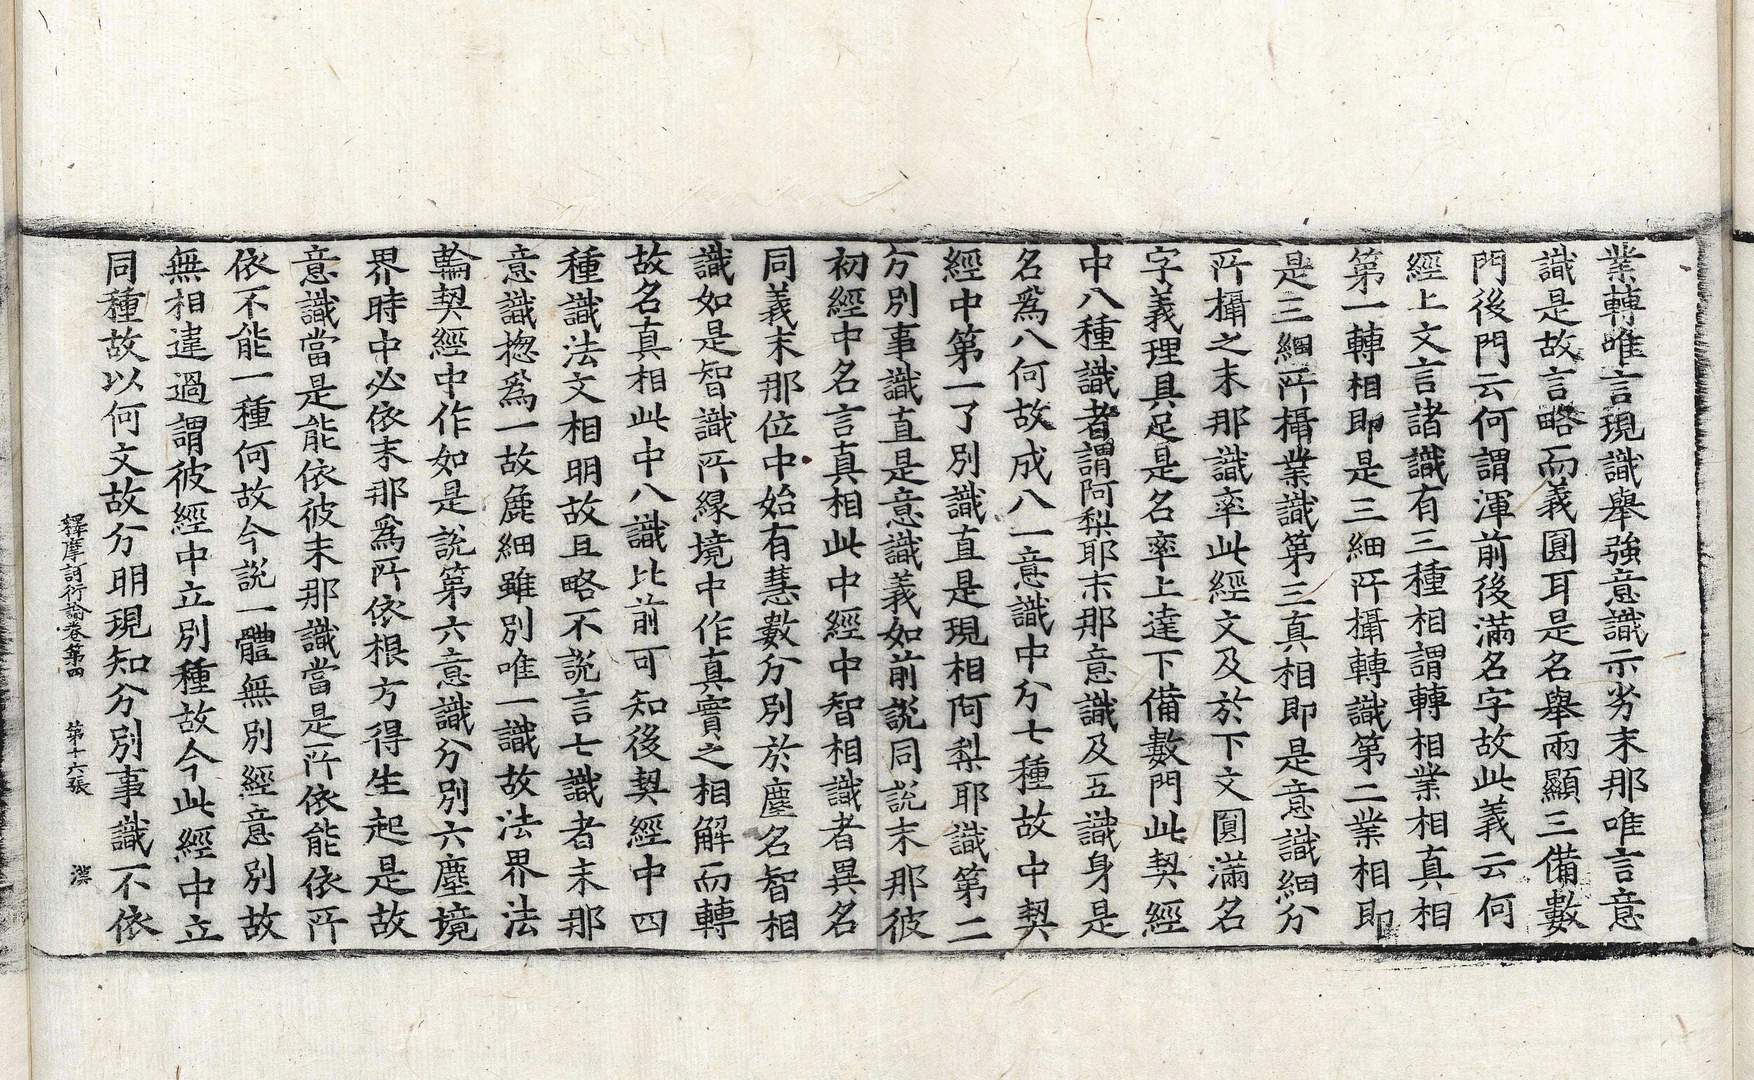 業轉唯言現識舉強意識示劣末那唯言意
識是故言略而義圓耳是名舉兩顯三備數
門後門云何謂渾前後滿名字故此義云何
經上文言諸識有三種相謂轉相業相真相
第一轉相即是三細所攝轉識第二業相即
是三細所攝業識第三真相即是意識細分
所攝之末那識率此經文及於下文圓滿名
字義理具足是名率上達下備數門此契經
中八種識者謂阿梨耶末那意識及五識身是
名爲八何故成八一意識中分七種故中契
經中第一了別識直是現相阿梨耶識第二
分別事識直是意識義如前説同説末那彼
初經中名言真相此中經中智相識者異名
同義末那位中始有慧數分別於塵名智相
識如是智識所縁境中作真實之相解而轉
故名真相此中八識比前可知後契經中四
種識法文相明故且略不説言七識者末那
意識揔爲一故麁細雖別唯一識故法界法
輪契經中作如是説第六意識分別六塵境
界時中必依末那爲所依根方得生起是故
意識當是能依彼末那識當是所依能依所
依不能一種何故今説一體無別經意別故
無相違過謂彼經中立別種故今此經中立
同種故以何文故分明現知分別事識不依
釋摩訶衍論卷第四　第十六張　漢